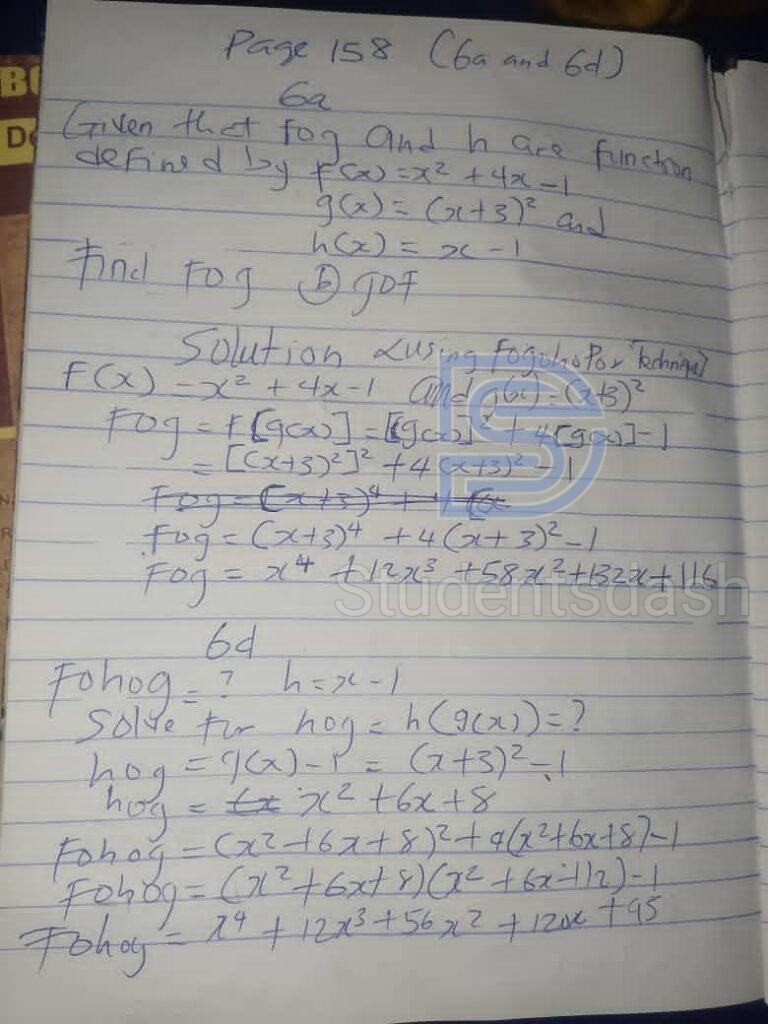 Page 158 (6a and 6d)
6a
Given that fog and h are function
defined by f(x) = x² + 4x - 1
g(x) = (x+3)² and
h(x) = x - 1
Find Fog (b) goF
Solution using
F(x) = x² + 4x - 1 and g(x) = (x+3)²
Fog = F[g(x)] = [g(x)]² + 4[g(x)] - 1
= [(x+3)²]² + 4(x+3)² - 1
Fog = (x+3)⁴ + 4(x
Fog = (x+3)⁴ + 4(x+3)² - 1
Fog = x⁴ + 12x³ + 58x² + 132x + 116
Studentsdash
6d
Fohog = ? h = x - 1
Solve for hog = h(g(x)) = ?
hog = g(x) - 1 = (x+3)² - 1
hog = 6x x² + 6x + 8
Fohog = (x² + 6x + 8)² + 4(x² + 6x + 8) - 1
Fohog = (x² + 6x + 8)(x² + 6x + 12) - 1
Fohog = x⁴ + 12x³ + 56x² + 120x + 95